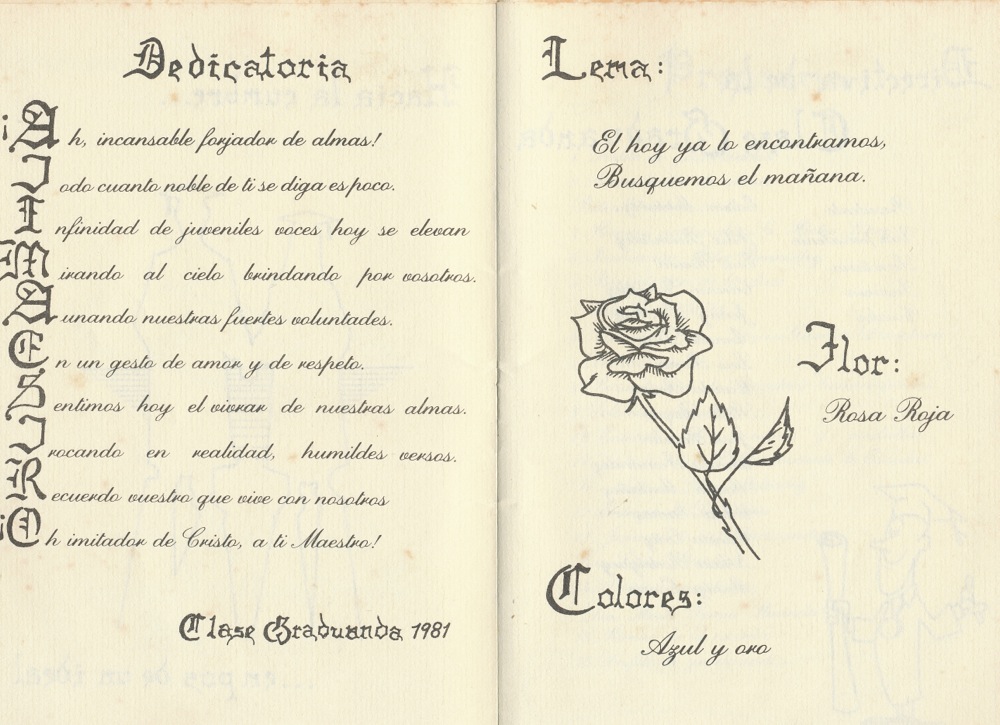 Dedicatoria
¡Ah, incansable forjador de almas!
Todo cuanto noble de ti se diga es poco.
Infinidad de juveniles voces hoy se elevan
Mirando al cielo brindando por vosotros.
Aunando nuestras fuertes voluntades.
En un gesto de amor y de respeto.
Sentimos hoy el vivrar de nuestras almas.
Trocando en realidad, humildes versos.
Recuerdo vuestro que vive con nosotros
¡Oh imitador de Cristo, a ti Maestro!
Clase Graduanda 1981
Lema:
El hoy ya lo encontramos,
Busquemos el mañana.
Flor:
Rosa Roja
Colores:
Azul y oro